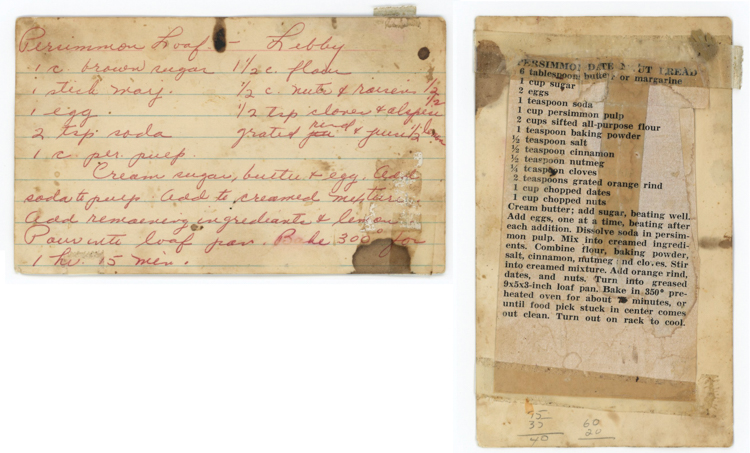 Persimmon Loaf – Libby
1 c. brown sugar 1½ c. flour
1 stick marg. ½ c. nuts & raisins ½
1 egg. ½ tsp cloves & alspice ½
2 tsp. soda grated rind & juice ½
1 c. per. pulp
Cream sugar, butter & egg. Add
soda to pulp. Add to creamed mixture.
Add remaining ingredients & lemon
Pour into loaf pan. Bake 300° for
1 hr. 15 min.
PERSIMMON DATE NUT BREAD
6 tablespoons butter or margarine
1 cup sugar
2 eggs
1 teaspoon soda
1 cup persimmon pulp
2 cups sifted all-purpose flour
1 teaspoon baking powder
½ teaspoon salt
½ teaspoon cinnamon
½ teaspoon nutmeg
¼ teaspoon cloves
2 teaspoons grated orange rind
1 cup chopped dates
1 cup chopped nuts
Cream butter; add sugar, beating well.
Add eggs, one at a time, beating after
each addition. Dissolve soda in persim-
mon pulp. Mix into creamed ingredi-
ents. Combine flour, baking powder,
salt, cinnamon, nutmeg and cloves. Stir
into creamed mixture. Add orange rind,
dates, and nuts. Turn into greased
9x5x3-inch loaf pan. Bake in 350° pre-
heated oven for about minutes, or
until food pick stuck in center comes
out clean. Turn out on rack to cool.
60
40 20